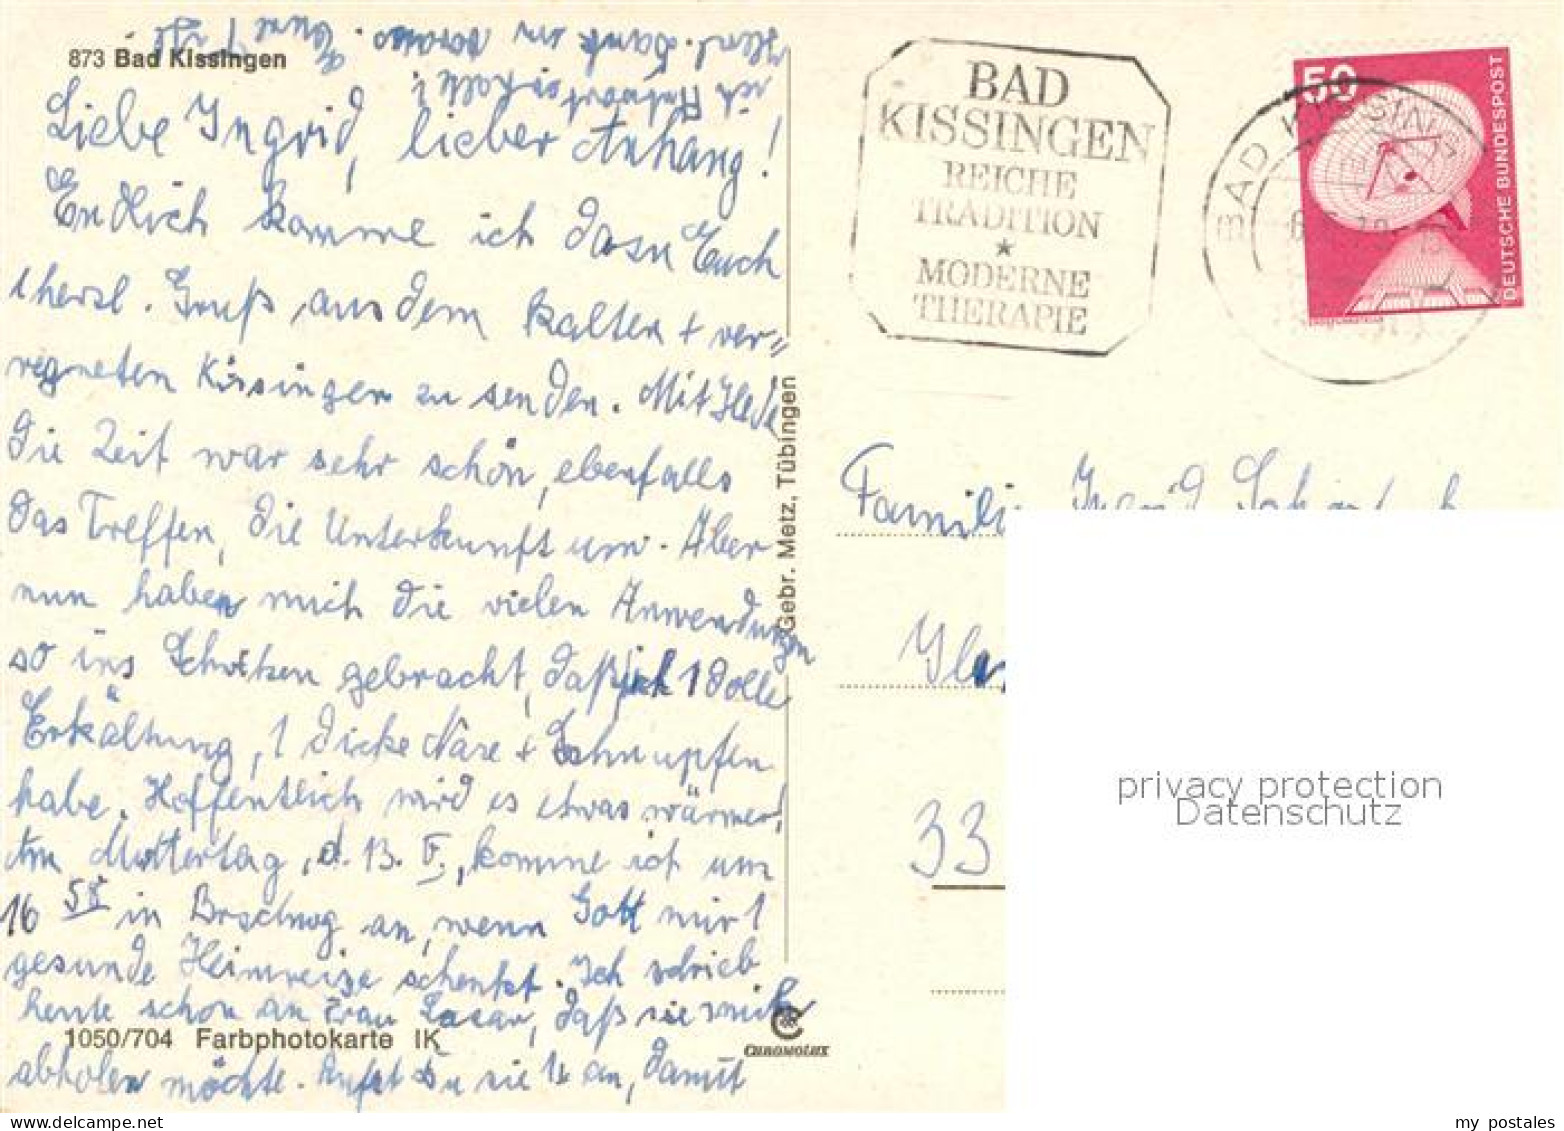 873 Bad Kissingen
Liebe Ingrid, lieber Anhang!
Endlich komme ich dazu Euch
1 herzl. Gruß aus dem kalten + ver=
regneten Kissingen zu senden. Mit Hede
die Zeit war sehr schön, ebenfalls
das Treffen, die Unterkunft usw. Aber
nun haben mich die vielen Anwendungen
so ins Schwitzen gebracht, daß ich 1 dolle
Erkältung, 1 dicke Nase + Schnupfen
habe. Hoffentlich wird es etwas wärmer!
Am Muttertag, d. 13. V., komme ich um
16 58 in Brschwg an, wenn Gott mir 1
gesunde Heimreise schenkt. Ich schrieb
heute schon an Frau Lasar, daß sie mich
abholen möchte. Rufst Du sie 1x an, damit
ich Antwort erhalte!
Herzl. Dank im voraus. Eure
1050/704 Farbphotokarte IK
Gebr. Metz, Tübingen
CHROMOLUX
BAD
KISSINGEN
REICHE
TRADITION
★
MODERNE
THERAPIE
BAD KISSINGEN
50
DEUTSCHE BUNDESPOST
Familie Ingrid
33
privacy protection
Datenschutz
www.delcampe.net
my_postales